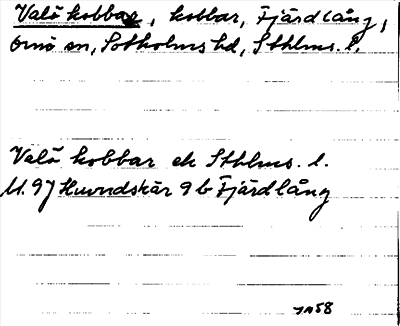 Valö kobbar, kobbar, Fjärdlång,
Ornö sn, Sotholms hd, Sthlms. l.
Valö kobbar ek Sthlms. l.
Bl. 97 Huvudskär 9 b Fjärdlång
58